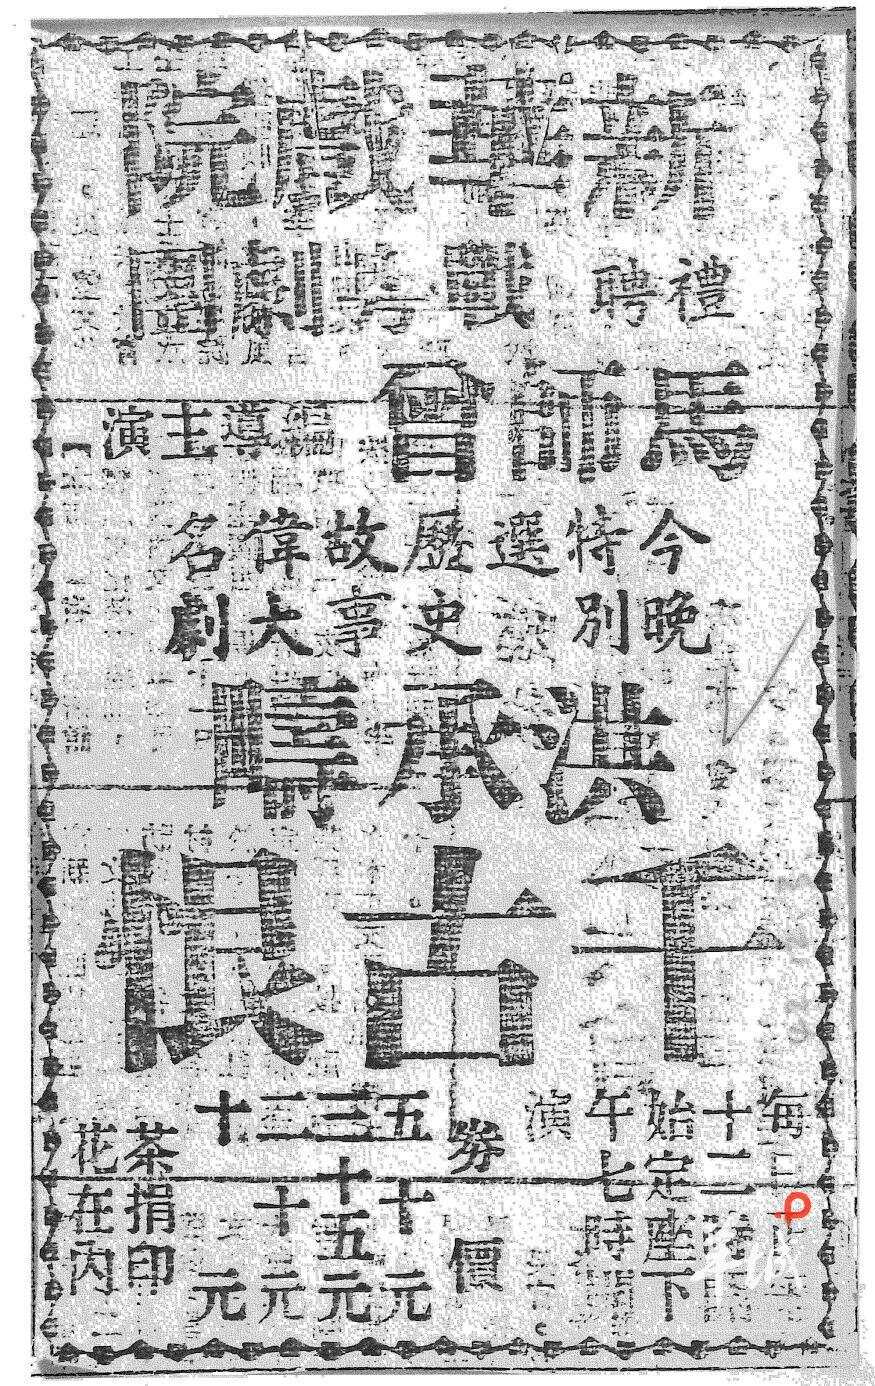 新華戲院
禮聘
戰粵劇團
馬師曾
編導主演
今晚
特別
選
歷史
故事
偉大
名劇
洪承疇
千古恨
每日正
十二時開
始定座下
午七時開
演
券價
五十元
三十五元
二十元
十元
茶捐印
花在內